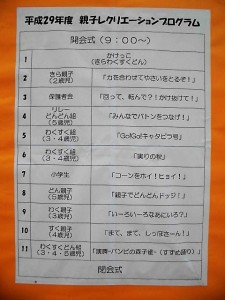 平成29年度 親子レクリエーションプログラム
開会式（9：00～）
1 かけっこ
（きらわくすくどん）
2 きら親子
（2歳児）
「力を合わせてやさいをとるぞ！」
3 保護者会 「回って、転んで？！かけ抜けて！」
4 リレー
どんどん組
（5歳児）
「みんなでバトンをつなげ！」
5 わくすく組
（3・4歳児）
「Go!Go!キャタピラ号」
6 わくすく組
（3・4歳児）
「実りの秋」
7 小学生 「コーンをホイ！ヒョイ！」
8 どん親子
（5歳児）
「親子でどんどんドッジ！」
9 わく親子
（3歳児）
「いーろいーろなあにいろ？」
10 すく親子
（4歳児）
「まて、まて、しっぽさーん！」
11 わくすくどん組
（3・4・5歳児）
閉会式